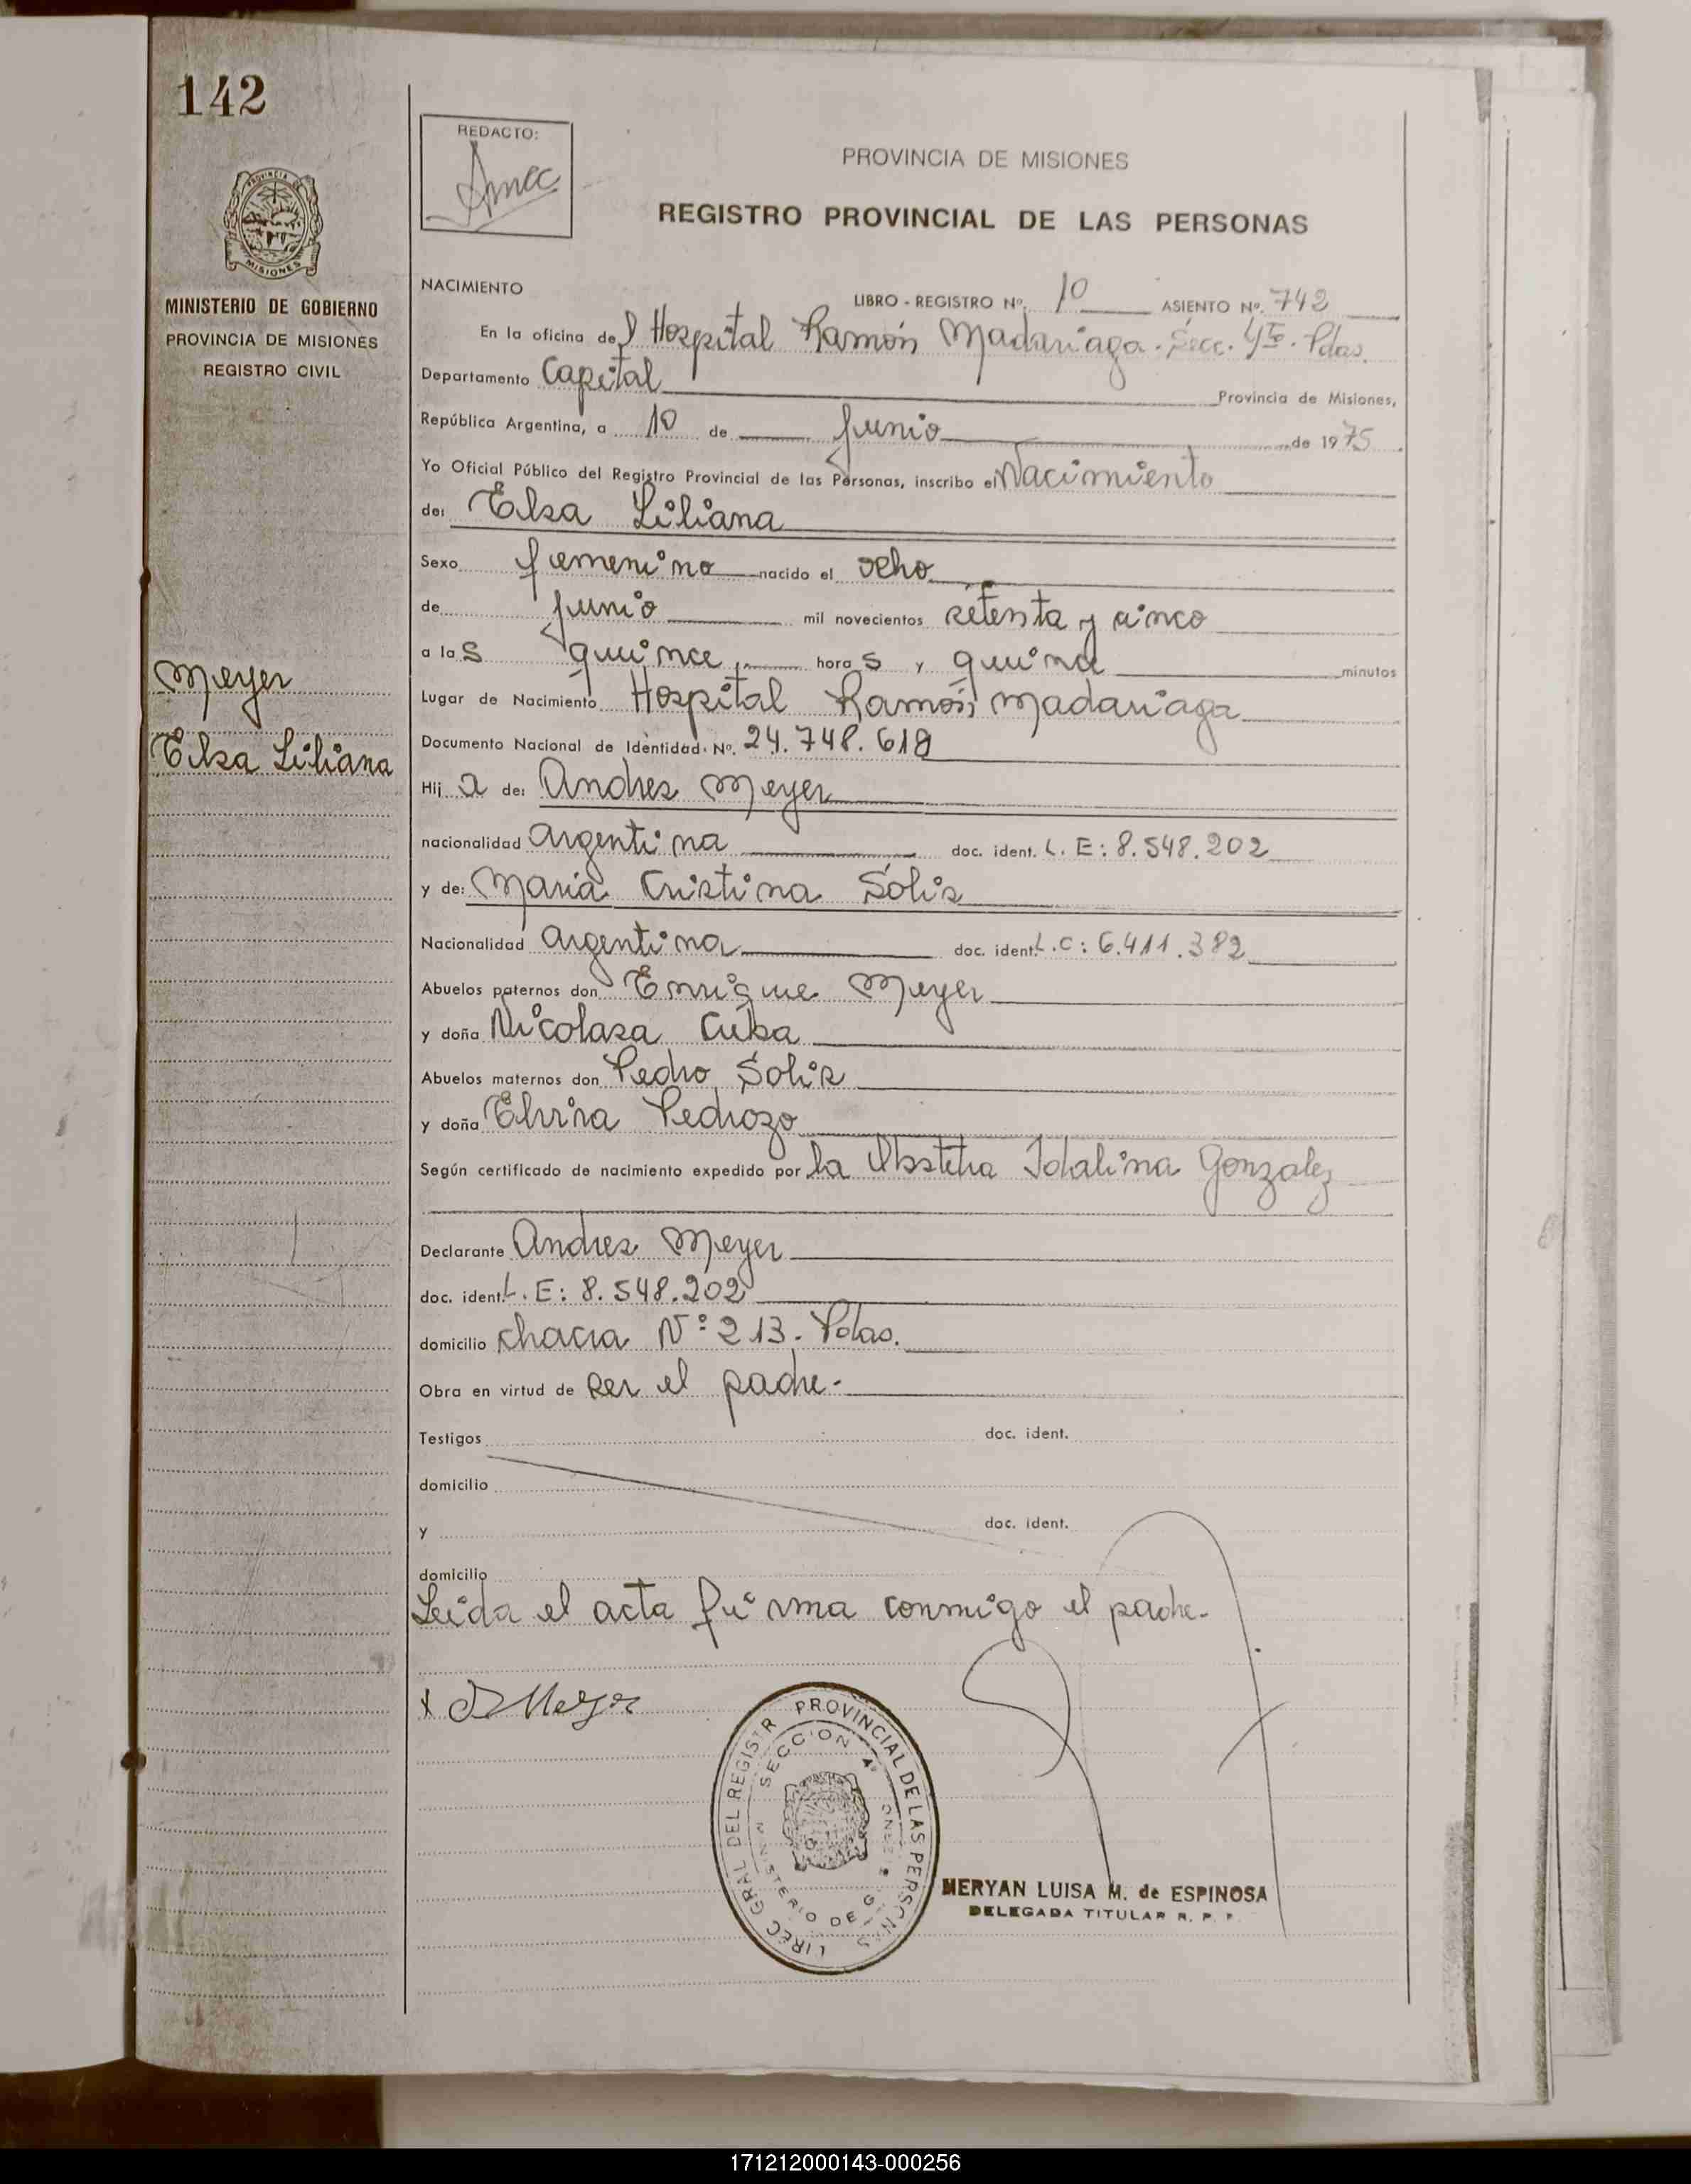 142
REDACTO:
PROVINCIA DE MISIONES
REGISTRO PROVINCIAL DE LAS PERSONAS
PROVINCIA DE
MISIONES
MINISTERIO DE GOBIERNO
PROVINCIA DE MISIONES
REGISTRO CIVIL
NACIMIENTO
LIBRO - REGISTRO Nº. 10 ASIENTO Nº. 742
En la oficina del Hospital Ramón Madariaga. Secc. 4ta. Pdas.
Departamento Capital Provincia de Misiones,
República Argentina, a 10 de Junio de 1975.
Yo Oficial Público del Registro Provincial de las Personas, inscribo el Nacimiento
de: Elsa Liliana
Sexo femenino nacido el ocho
de Junio mil novecientos setenta y cinco
a las quince horas y quince minutos
Meyer
Elsa Liliana
Lugar de Nacimiento Hospital Ramón Madariaga
Documento Nacional de Identidad Nº. 24.748.618
Hija de: Andres Meyer
nacionalidad argentina doc. ident. L. E: 8.548.202
y de: Maria Cristina Solis
Nacionalidad argentina doc. ident. L.C: 6.411.382
Abuelos paternos don Enrique Meyer
y doña Nicolasa
Abuelos maternos don Pedro Solis
y doña Elvira Pedrozo
Según certificado de nacimiento expedido por la Obstetra Idalina Gonzalez
Declarante Andres Meyer
doc. ident. L. E: 8.548.202
domicilio chacra Nº 213. Pdas.
Obra en virtud de ser el padre.-
Testigos doc. ident.
domicilio
y doc. ident.
domicilio
Leida el acta firma conmigo el padre.-
x Meyer
DIREC GRAL DEL REGISTR PROVINCIAL DE LAS PERSONAS
SECCION 4ª
MINISTERIO DE GOBIERNO
MERYAN LUISA M. de ESPINOSA
DELEGADA TITULAR R. P. P.
171212000143-000256